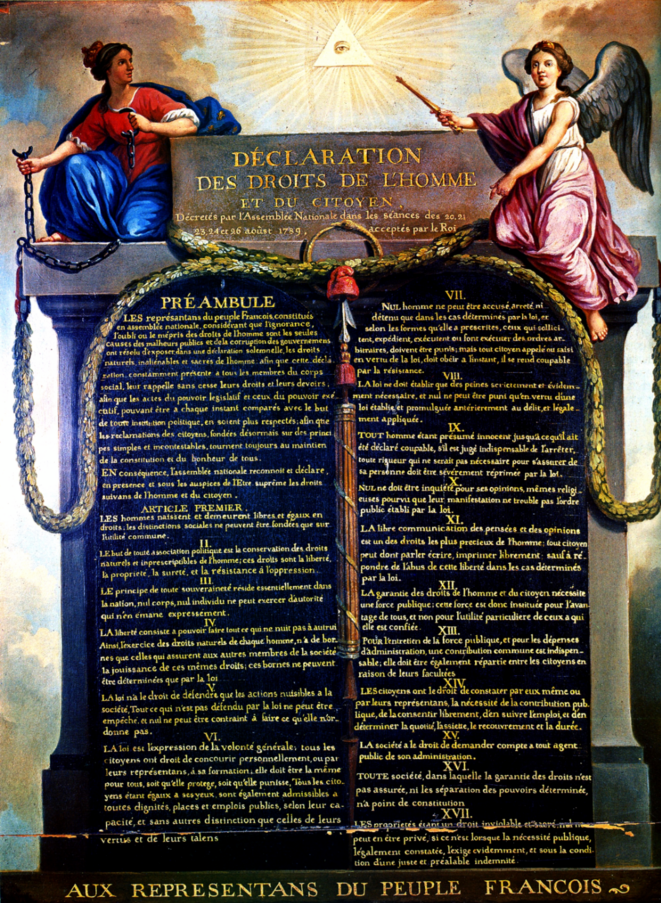 DÉCLARATION
DES DROITS DE L'HOMME
ET DU CITOYEN,
Décretés par l'Assemblée Nationale dans les séances des 20. 21
23. 24 et 26 aoûst 1789, acceptés par le Roi
PRÉAMBULE
LES représentans du peuple Francois, constitués
en assemblée nationale, considérant que l'ignorance,
l'oubli ou le mépris des droits de l'homme sont les seules
causes des malheurs publics et de la corruption des gouvernemens
ont résolu d'exposer, dans une déclaration solemnelle, les droits
naturels, inaliénables et sacrés de l'homme: afin que cette décla-
ration, constamment présente a tous les membres du corps
social, leur rappelle sans cesse leurs droits et leurs devoirs;
afin que les actes du pouvoir législatif et ceux du pouvoir exé-
cutif, pouvant être a chaque instant comparés avec le but
de toute institution politique, en soient plus respectés; afin que
les reclamations des citoyens, fondées désormais sur des princi-
pes simples et incontestables, tournent toujours au maintien
de la constitution et du bonheur de tous.
EN conséquence, l'assemblée nationale reconnoit et déclare,
en presence et sous les auspices de l'Etre suprême les droits
suivans de l'homme et du citoyen.
ARTICLE PREMIER.
LES hommes naissent et demeurent libres et égaux en
droits; les distinctions sociales ne peuvent être fondées que sur
l'utilité commune.
II.
LE but de toute association politique est la conservation des droits
naturels et inprescriptibles de l'homme; ces droits sont la liberté,
la propriété, la sureté, et la résistance à l'oppression.
III.
LE principe de toute souveraineté réside essentiellement dans
la nation, nul corps, nul individu ne peut exercer d'autorité
qui n'en émane expressément.
IV.
LA liberté consiste a pouvoir faire tout ce qui ne nuit pas à autrui
Ainsi, l'exercice des droits naturels de chaque homme, n'a de bor-
nes que celles qui assurent aux autres membres de la société
la jouissance de ces mêmes droits; ces bornes ne peuvent
être déterminées que par la loi
V.
LA loi n'a le droit de défendre que les actions nuisibles a la
société. Tout ce qui n'est pas défendu par la loi ne peut être
empêché, et nul ne peut être contraint à faire ce qu'elle n'or-
donne pas.
VI.
LA loi est l'expression de la volonté générale; tous les
citoyens ont droit de concourir personnellement, ou par
leurs représentans, à sa formation; elle doit être la même
pour tous, soit qu'elle protege, soit qu'elle punisse, Tous les cito-
yens étant égaux a ses yeux, sont également admissibles a
toutes dignités, places et emplois publics, selon leur ca-
pacité, et sans autres distinction que celles de leurs
vertus et de leurs talens
VII.
NUL homme ne peut être accusé, arreté, ni
détenu que dans les cas déterminés par la loi, et
selon les formes qu'elle a prescrites, ceux qui sollici-
tent, expédient, exécutent ou font exécuter des ordres ar-
bitraires, doivent être punis; mais tout citoyen appelé ou saisi
en vertu de la loi, doit obéir a l'instant, il se rend coupable
par la résistance.
VIII.
LA loi ne doit établir que des peines strictement et évidem-
ment nécessaire, et nul ne peut être puni qu'en vertu d'une
loi établie et promulguée antérierement au délit, et légale-
ment appliquée.
IX.
TOUT homme étant présumé innocent jusqu'a ce qu'il ait
été déclaré coupable, s'il est jugé indispensable de l'arrêter,
toute rigueur qui ne serait pas nécessaire pour s'assurer de
sa personne doit être sévèrement réprimée par la loi.
X.
NUL ne doit être inquiété pour ses opinions, mêmes religi-
euses pourvu que leur manifestation ne trouble pas l'ordre
public établi par la loi.
XI.
LA libre communication des pensées et des opinions
est un des droits les plus precieux de l'homme; tout citoyen
peut dont parler écrire, imprimer librement: sauf à ré-
pondre de l'abus de cette liberté dans les cas déterminés
par la loi.
XII.
LA garantie des droits de l'homme et du citoyen nécessite
une force publique; cette force est donc instituée pour l'avan-
tage de tous, et non pour l'utilité particuliere de ceux a qui
elle est confiée.
XIII.
Pour l'entretien de la force publique, et pour les dépenses
d'administration, une contribution commune est indispen-
sable; elle doit être également répartie entre les citoyens en
raison de leurs facultées
XIV.
LES citoyens ont le droit de constater par eux même ou
par leurs représentans, la nécessité de la contribution pub-
lique, de la consentir librement, d'en suivre l'emploi, et d'en
déterminer la quotité, l'assiette, le recouvrement et la durée.
XV.
LA société a le droit de demander compte a tout agent
public de son administration.
XVI.
TOUTE société, dans laquelle la garantie des droits n'est
pas assurée, ni les séparation des pouvoirs déterminée,
n'a point de constitution
XVII.
LES proprietés étant un droit inviolable et sacré, nul ne
peut en être privé, si ce n'est lorsque la nécessité publique,
légalement constatée, l'exige evidemment, et sous la condi-
tion d'une juste et préalable indemnité
AUX REPRESENTANS DU PEUPLE FRANCOIS